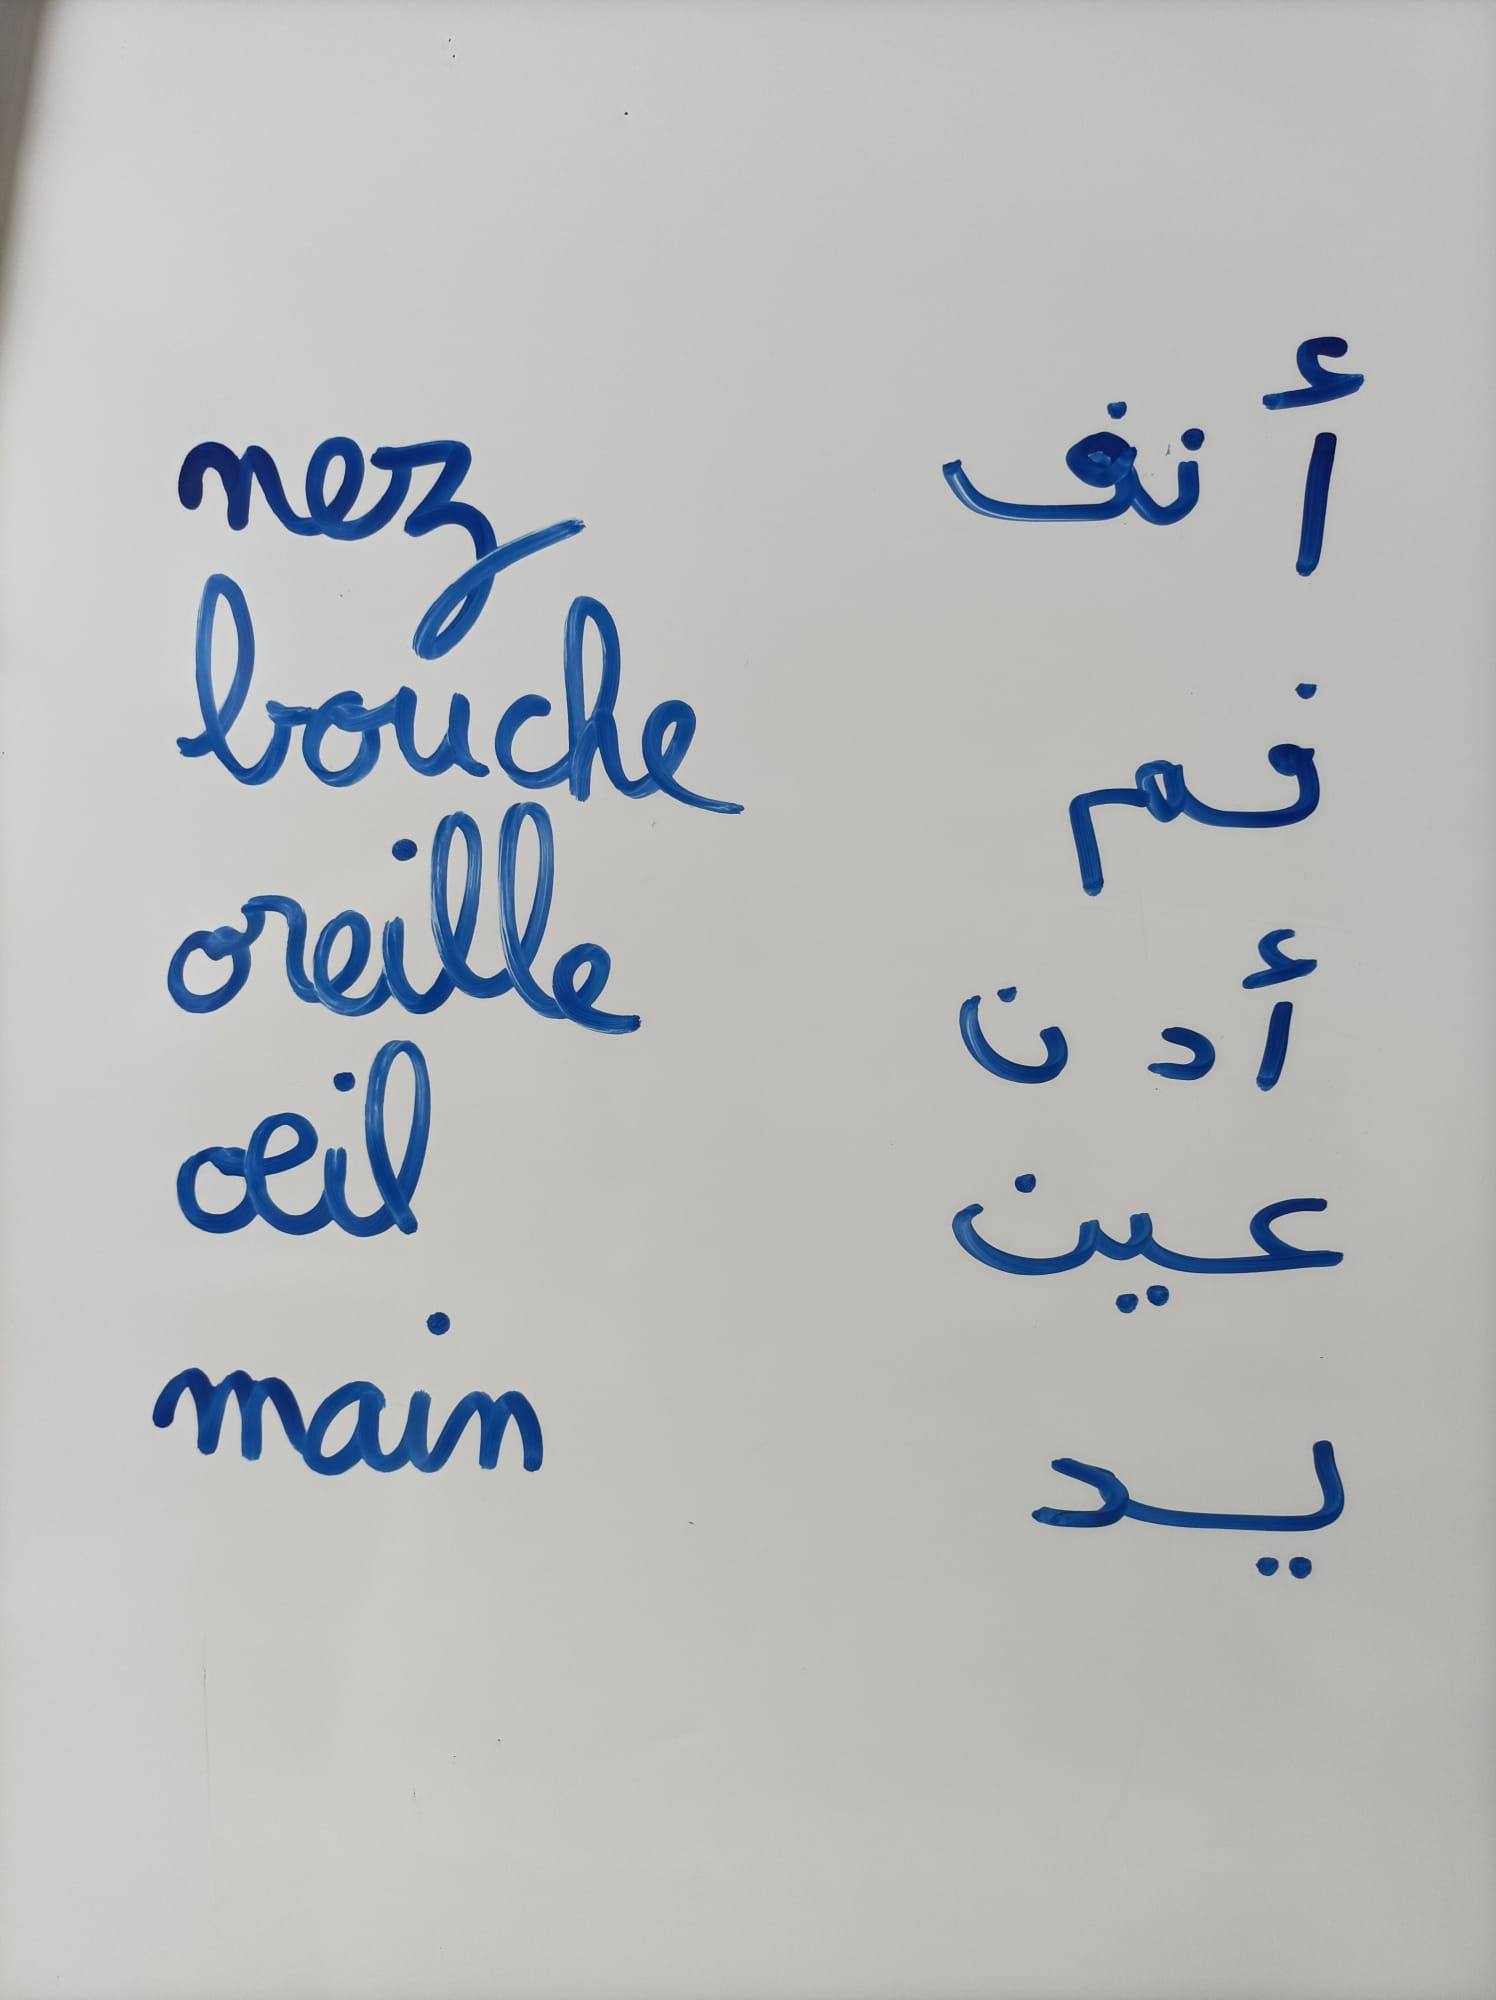 nez أنف
bouche فم
oreille أدن
œil عين
main يد